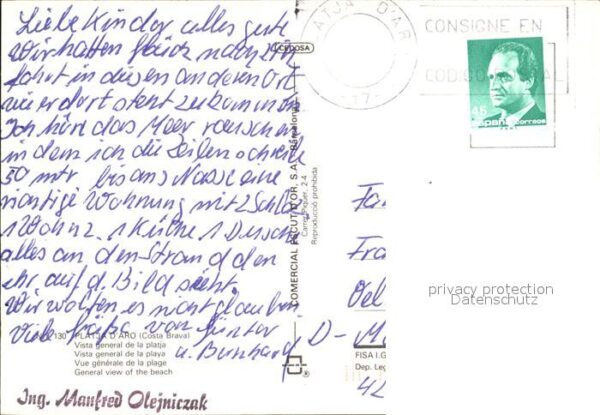 Liebe Kinder alles gute
Wir hatten
fahrt in diesen anderen Ort
wie er dort steht zu kommen
Ich höre das Meer rauschen
in dem ich die Zeilen schreibe
50 mtr bis ans Nasse eine
Wohnung mit 2 Schlaf
1 Wohnz. 1 Küche 1 Dusche
alles an den Strand den
ihr auf d. Bild sieht.
Wir wollten es nicht glauben
Viele Grüße von Günter
u. Bernhard
130 PLATJA D'ARO (Costa Brava)
Vista general de la platja
Vista general de la playa
Vue générale de la plage
General view of the beach
Ing. Manfred Olejniczak
CEDOSA
COMERCIAL ESCUDO D'OR, S.A.
Barcelona
2-4
Reproducció prohibida
PLATJA D'ARO
CONSIGNE EN
CODIGO POSTAL
45
España correos
Fa
Fra
Oel
D-M
42
FISA I.G
Dep. Leg
privacy protection
Datenschutz